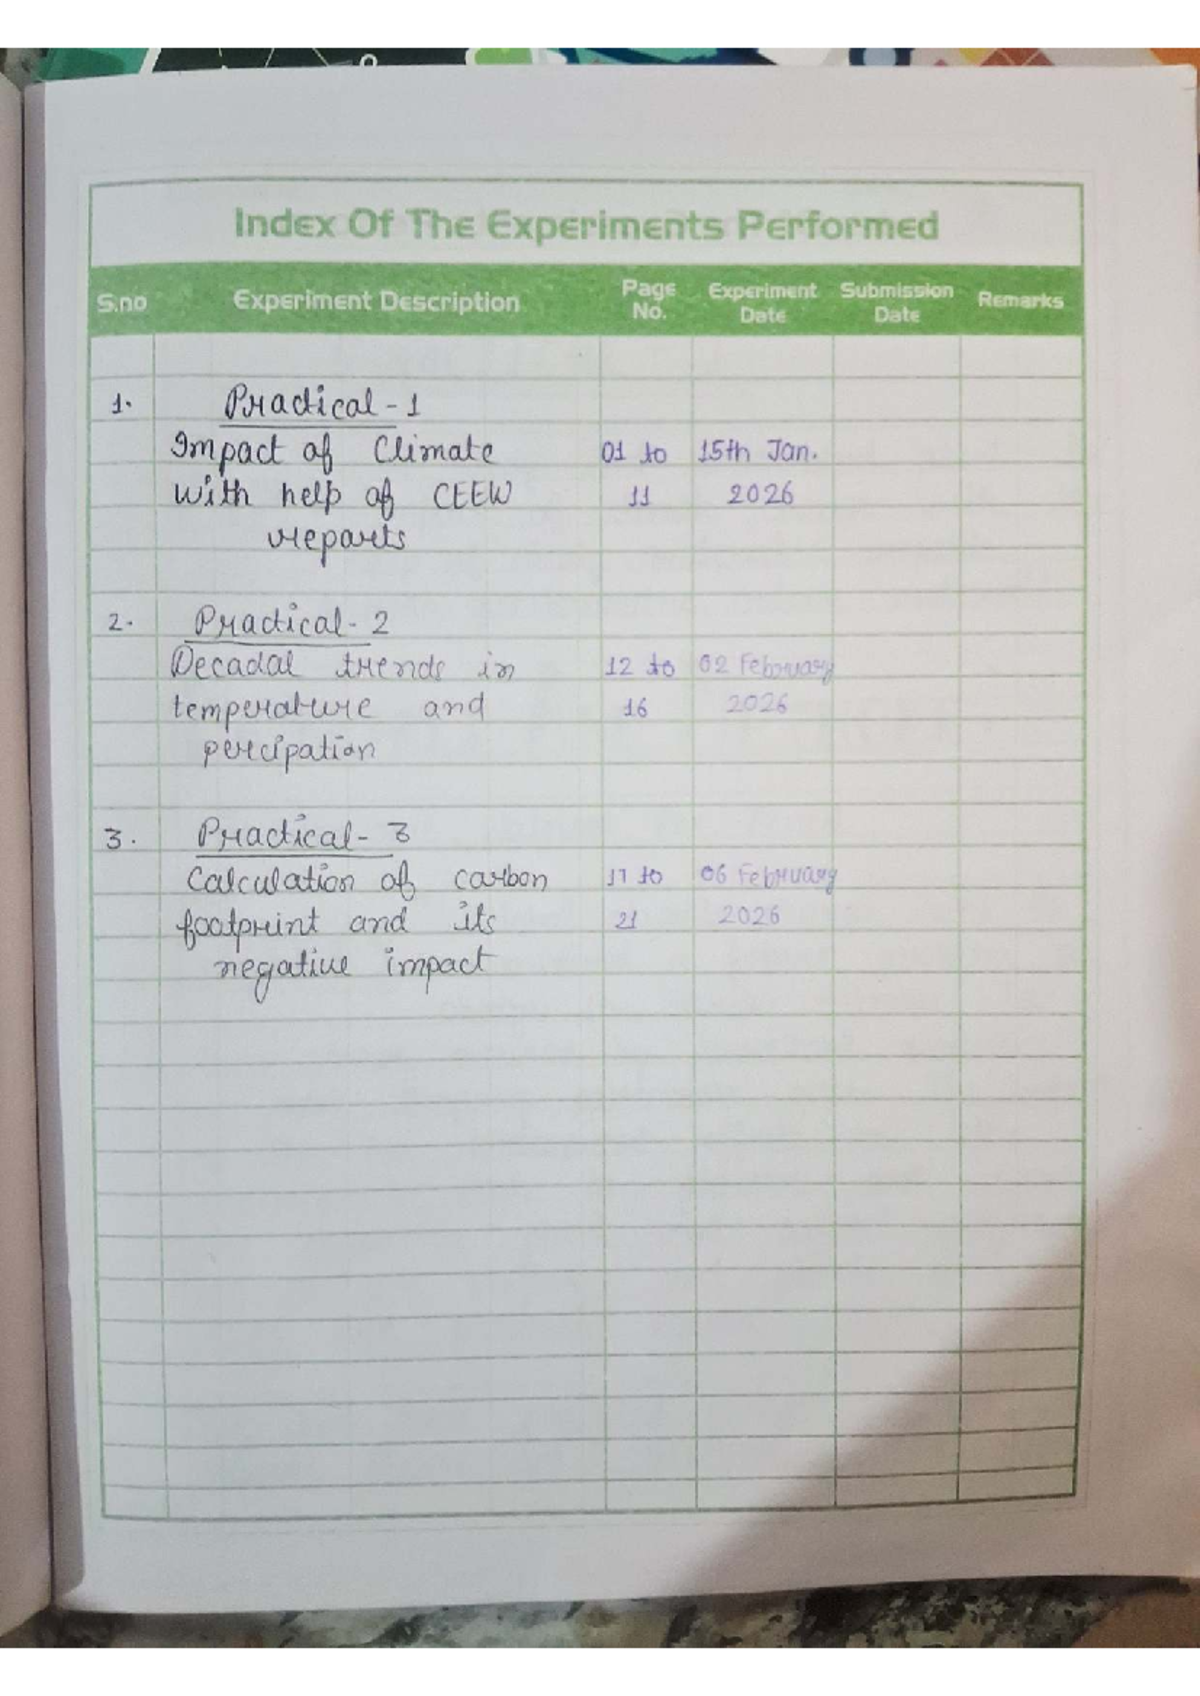 Index Of The Experiments Performed
S.no Experiment Description Page No. Experiment Date Submission Date Remarks
1. Practical-1
Impact of Climate 01 to 15th Jan.
With help of CEEW 11 2026
reports
2. Practical-2
Decadal trends in 12 to 02 February
temperature and 16 2026
percipation
3. Practical-3
Calculation of carbon 17 to 06 February
footprint and its 21 2026
negative impact